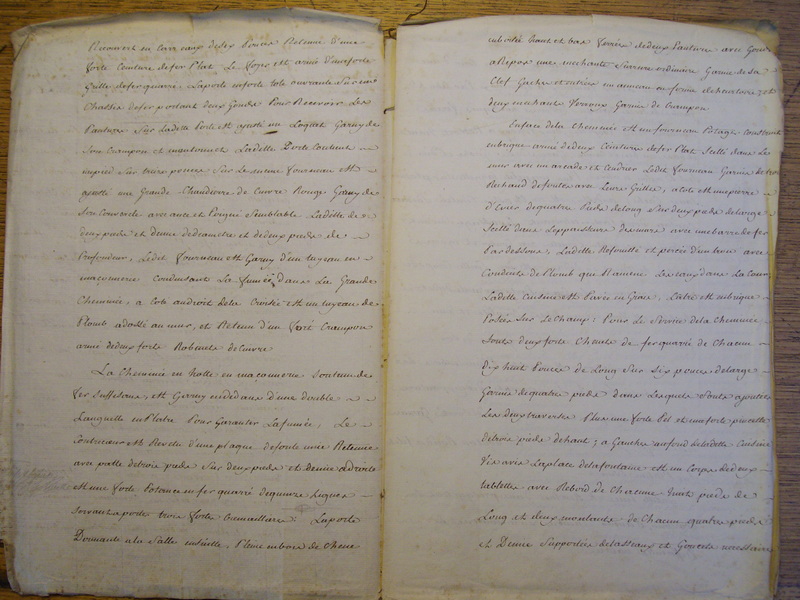 Recouvert en carreaux de six pouces Retenu d'une
forte Ceinture de fer Plat Le foyer est armé d'une forte
Grille de fer quarré, La porte en forte tole ouvrante sur son
Chassis de fer portant deux Gonds Pour Recevoir Les
Pantures Sur Ladite Porte est ajusté un Loquet Garny de
Son Crampon et mentonnet Ladite Porte Contient
sur treize pouces Sur Le meme fourneau est
ajusté une Grande Chaudierre de Cuivre Rouge Garny de
Son Couvercle avec ance et Poignée Semblable Ladite de
deux pieds et Demie de diametre et de deux pieds de
Profondeur, Ledit fourneau est Garny d'un tuyeau en
maçonnerie Conduisant La fumée dans La Grande
Cheminée, a Coté au droit de la Croisée est un tuyeau de
Plomb adossé au mur, et Retenu d'un Crampon
armé de deux forte Robinets de Cuivre
La Cheminée en hotte en maçonnerie Soutenu de
fer Suffisans, est Garny en dedans d'une double
Languette en Platre Pour Garantir La fumée, Le
Contrecœur est Revetu d'une plaque de fonte unie Retenue
avec patte de trois pieds Sur deux pieds et demie
est une forte Potance en fer quarré de quinze Lignes
Servant a porter trois forte Cramaillaire. La porte
Donnante a la Salle ensuitte, Pleine en bois de Chene
emboité haut et bas ferrée de deux Pantures avec Gonds
a Repos une mechante Serrure ordinaire Garnie de Sa
Clef Gache et entrée en
deux mechant Verroux, Garnis de Crampon
En face de la Cheminée est un fourneau Potager Construit
en brique armé de deux Ceinture de fer Plat Scellé dans Le
mur avec un arcade et Cendrier Ledit fourneau Garnie de
Rechaud de fonte avec Leurs Grilles, a Coté est une pierre
d'Evier de quatre Pieds de Long Sur deux pieds de Large
Scellé dans L'eppaisseur du mure avec une barre de fer
Par dessous, Ladite Refouillé et percée d'un trou avec
Conduite de Plomb qui Ramene Les eaux dans La Cour
Ladite Cuisine est Pavée en Grais, L'atre est en brique
Posées Sur Le Champ; Pour Le Service de la Cheminée
Sont deux forte Chenets de fer quarré de Chacun
Dix huit Pouces de Long Sur Six pouces de Large
Garnie de quatre pieds dans Lesquels ajoutés
Les deux traverses Plus une forte Pel et une forte pincette
de trois pieds de haut; a Gauche au fond de Ladite Cuisine
Vis avis La place de la fontaine est un Corps de deux
tablettes avec Rebord de Chacune huit pieds de
Long et deux montants de Chacun quatre pieds
et Demie Supportées de tasseaux et Goucets necessaire